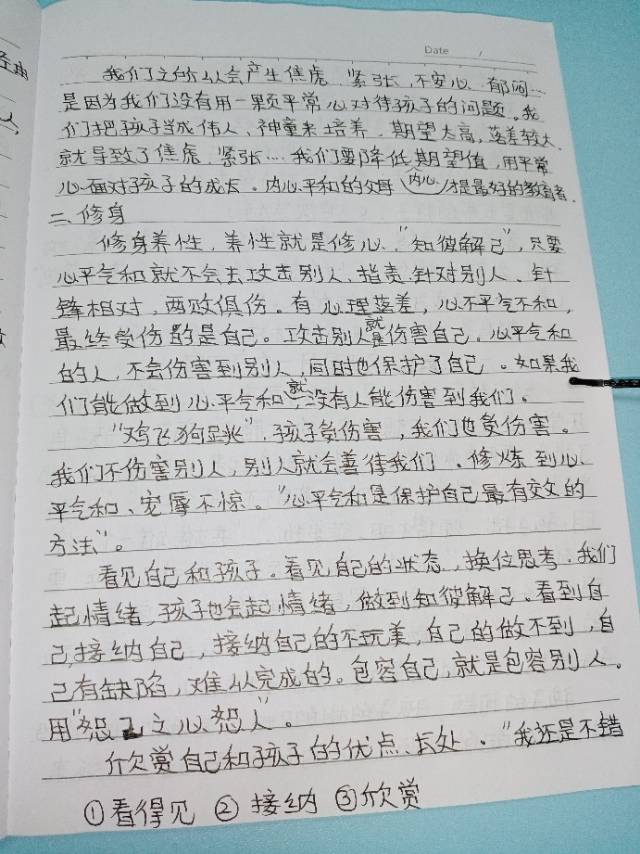 Date /
我们之所以会产生焦虑、紧张、不安心、郁闷…
是因为我们没有用一颗平常心对待孩子的问题。我
们把孩子当成伟人、神童来培养。期望太高,落差较大,
就导致了焦虑、紧张…我们要降低期望值,用平常
心面对孩子的成长。内心平和的父母(内心)才是最好的教育者。
二、修身
修身养性,养性就是修心。“知彼解己”,只要
心平气和就不会去攻击别人、指责、针对别人、针
锋相对,两败俱伤。有心理落差,心不平气不和,
最终受伤的是自己。攻击别人就是伤害自己。心平气和
的人,不会伤害到别人,同时也保护了自己。如果我
们能做到心平气和,就没有人能伤害到我们。
“鸡飞狗跳”,孩子受伤害,我们也受伤害。
我们不伤害别人,别人就会善待我们。修炼到心
平气和、宠辱不惊。“心平气和是保护自己最有效的
方法”。
看见自己和孩子。看见自己的状态,换位思考。我们
起情绪,孩子也会起情绪,做到知彼解己。看到自
己接纳自己,接纳自己的不玩美,自己的做不到,自
己有缺陷,难以完成的。包容自己,就是包容别人。
用“恕己之心恕人”。
欣赏自己和孩子的优点、长处。“我还是不错
①看得见 ②接纳 ③欣赏